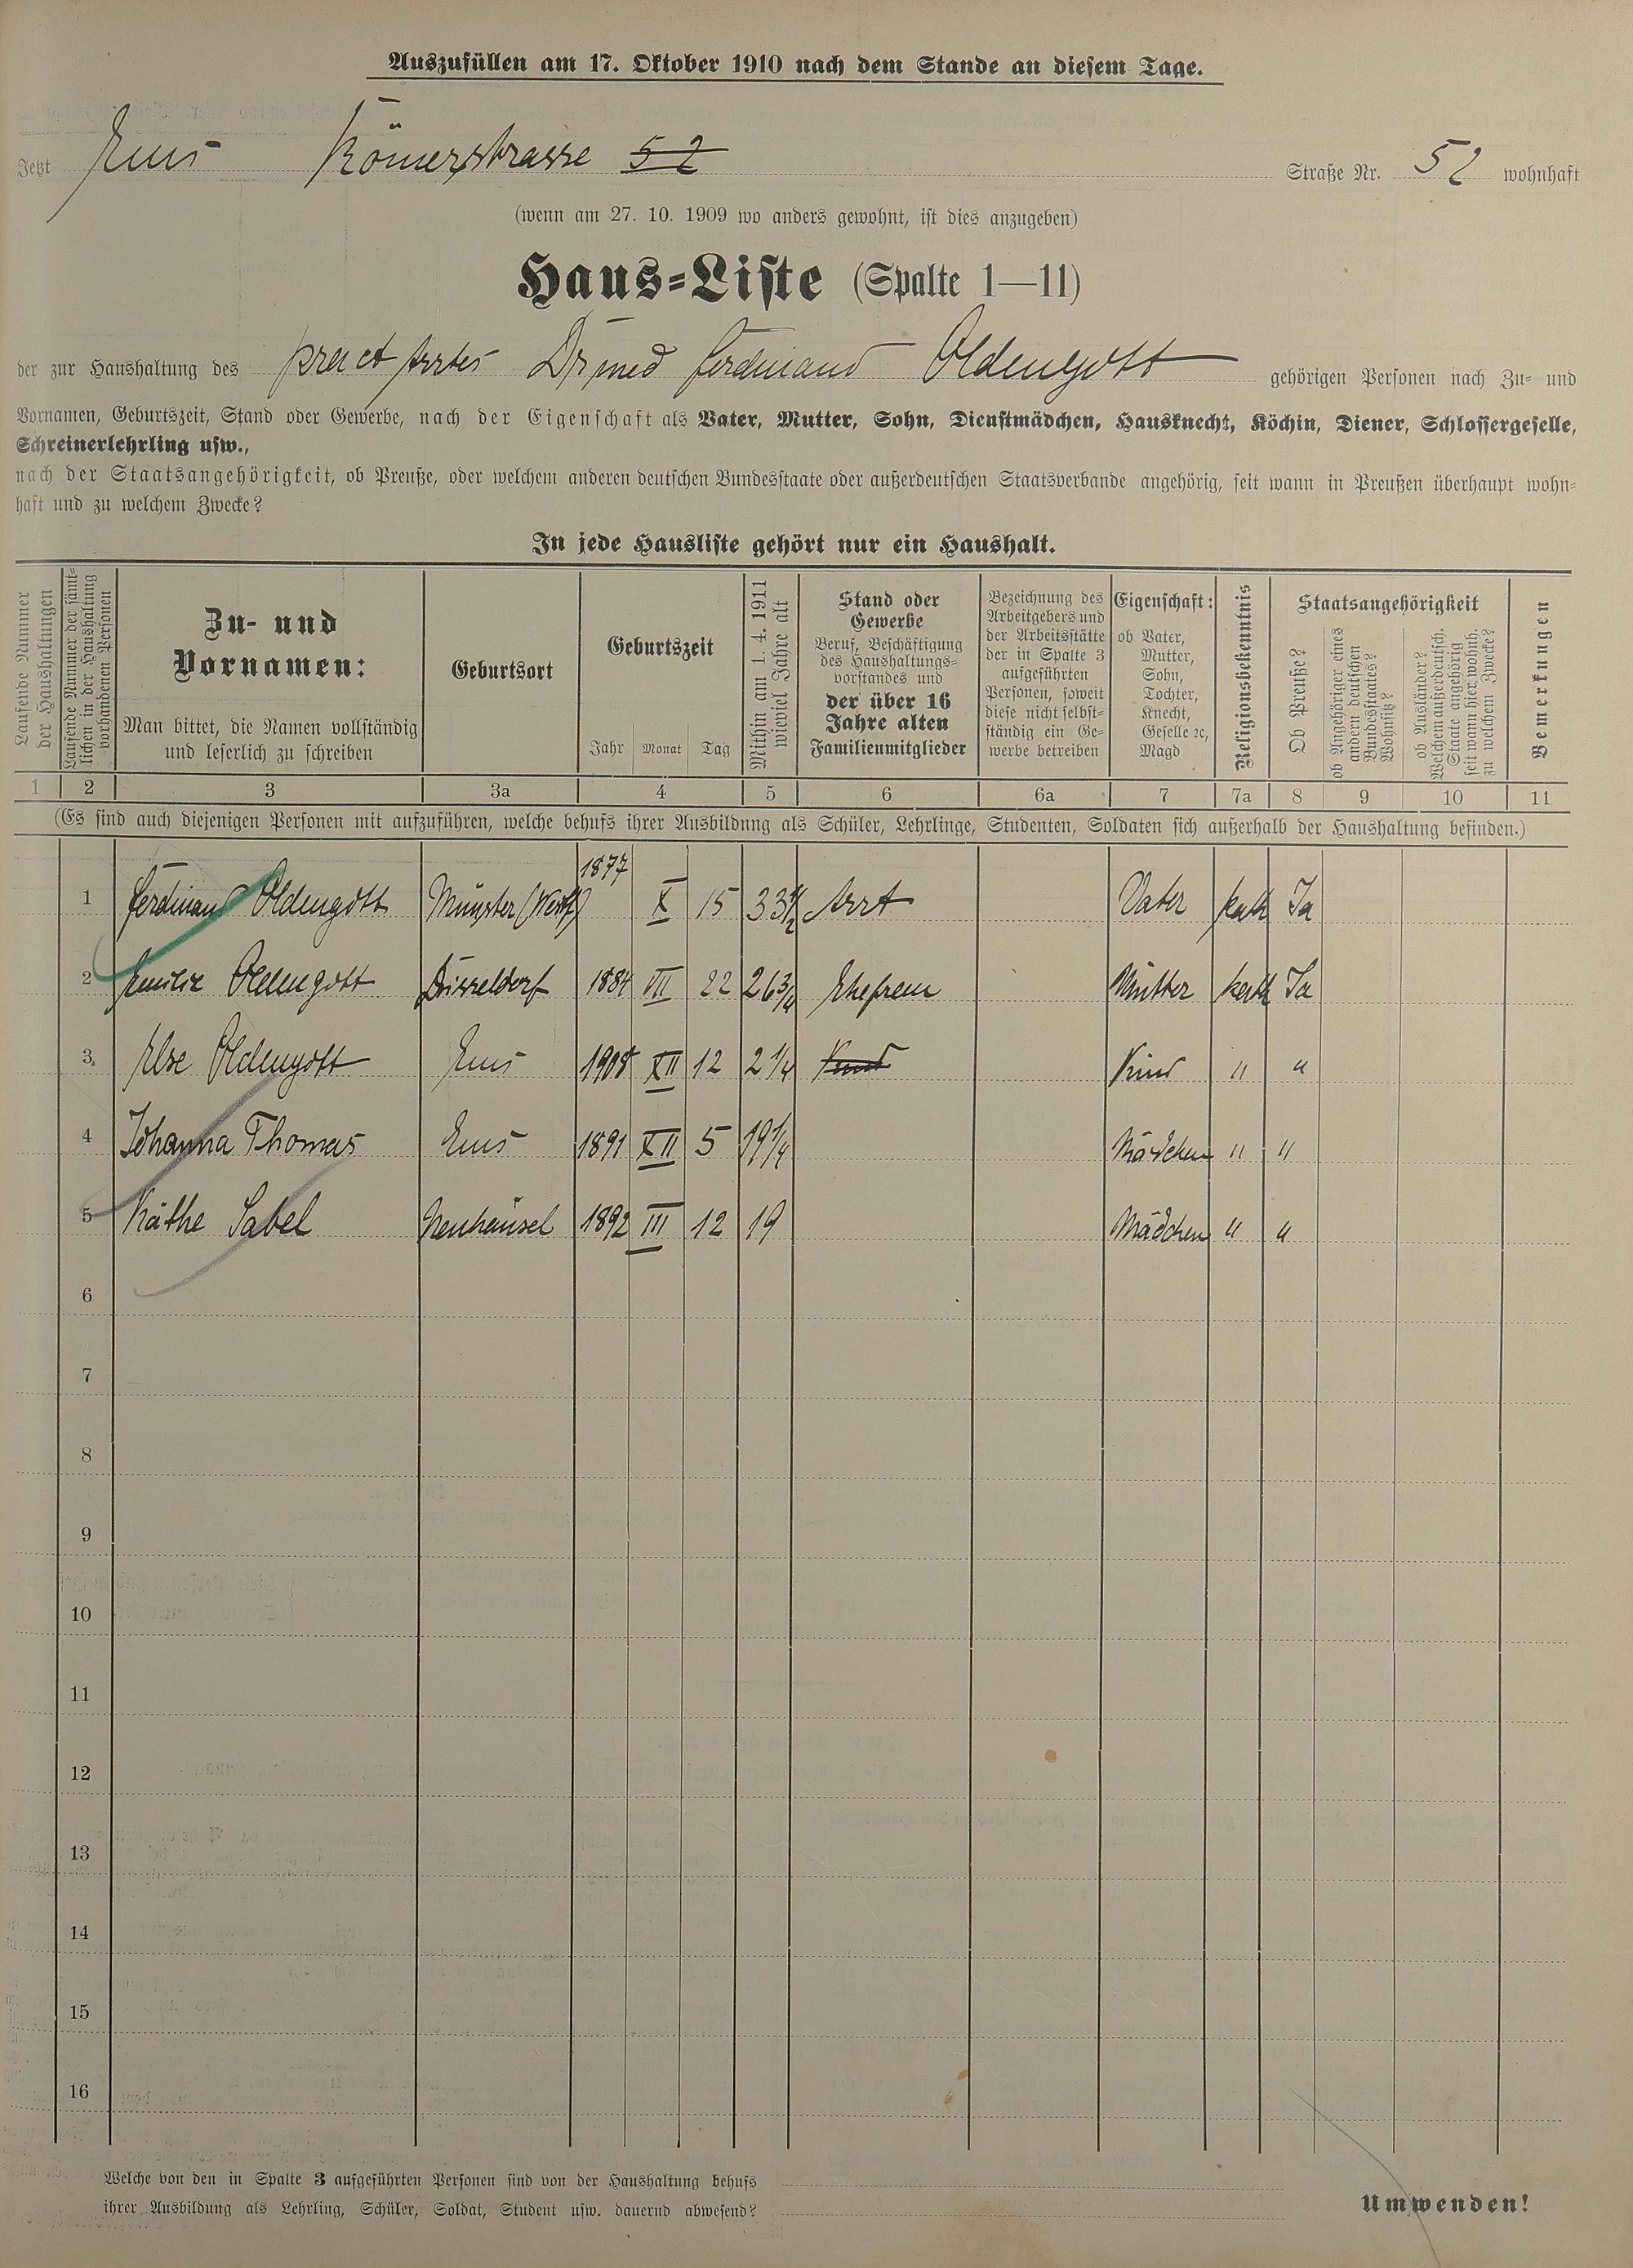 Auszufüllen am 17. Oktober 1910 nach dem Stande an diesem Tage.
Jetzt Ems Römerstrasse 52 Straße Nr. 52 wohnhaft
(wenn am 27. 10. 1909 wo anders gewohnt, ist dies anzugeben)
Haus-Liste (Spalte 1—11)
der zur Haushaltung des pract Arztes Dr med Ferdinand Oldengott gehörigen Personen nach Zu- und
Vornamen, Geburtszeit, Stand oder Gewerbe, nach der Eigenschaft als Vater, Mutter, Sohn, Dienstmädchen, Hausknecht, Köchin, Diener, Schlossergeselle,
Schreinerlehrling usw.,
nach der Staatsangehörigkeit, ob Preuße, oder welchem anderen deutschen Bundesstaate oder außerdeutschen Staatsverbande angehörig, seit wann in Preußen überhaupt wohn-
haft und zu welchem Zwecke?
In jede Hausliste gehört nur ein Haushalt.
Laufende Nummer
der Haushaltungen
Laufende Nummer der sämt-
lichen in der Haushaltung
vorhandenen Personen
Zu- und
Vornamen:
Man bittet, die Namen vollständig
und leserlich zu schreiben
Geburtsort
Geburtszeit
Jahr Monat Tag
Mithin am 1. 4. 1911
wieviel Jahre alt
Stand oder
Gewerbe
Beruf, Beschäftigung
des Haushaltungs-
vorstandes und
der über 16
Jahre alten
Familienmitglieder
Bezeichnung des
Arbeitgebers und
der Arbeitsstätte
der in Spalte 3
aufgeführten
Personen, soweit
diese nicht selbst-
ständig ein Ge-
werbe betreiben
Eigenschaft:
ob Vater,
Mutter,
Sohn,
Tochter,
Knecht,
Geselle 2c,
Magd
Religionsbekenntnis
Staatsangehörigkeit
Ob Preuße?
ob Angehöriger eines
andern deutschen
Bundesstaates?
Wohnsitz?
ob Ausländer?
Welchem außerdeutsch.
Staate angehörig
seit wann hier wohnh.
zu welchem Zwecke?
Bemerkungen
1 2 3 3a 4 5 6 6a 7 7a 8 9 10 11
(Es sind auch diejenigen Personen mit aufzuführen, welche behufs ihrer Ausbildung als Schüler, Lehrlinge, Studenten, Soldaten sich außerhalb der Haushaltung befinden.)
1 Ferdinand Oldengott Münster (Westf) 1877 X 15 33 1/2 Arzt Vater kath Ja
2 Emilie Oldengott Düsseldorf 1884 VII 22 26 3/4 Ehefrau Mutter kath Ja
3 Else Oldengott Ems 1908 XII 12 2 1/4 Kind Kind " "
4 Johanna Thomas Ems 1891 XII 5 19 1/4 Mädchen " "
5 Käthe Sabel Neuhäusel 1892 III 12 19 Mädchen " "
6
7
8
9
10
11
12
13
14
15
16
Welche von den in Spalte 3 aufgeführten Personen sind von der Haushaltung behufs
ihrer Ausbildung als Lehrling, Schüler, Soldat, Student usw. dauernd abwesend?
Umwenden!